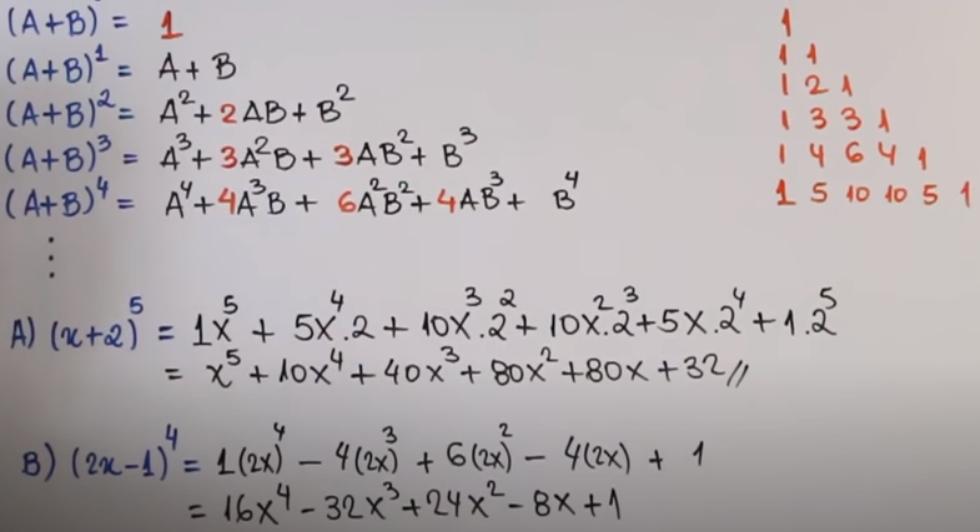 (A+B) = 1
(A+B)¹ = A + B
(A+B)² = A² + 2AB + B²
(A+B)³ = A³ + 3A²B + 3AB² + B³
(A+B)⁴ = A⁴ + 4A³B + 6A²B² + 4AB³ + B⁴
⋮
1
1 1
1 2 1
1 3 3 1
1 4 6 4 1
1 5 10 10 5 1
A) (x+2)⁵ = 1x⁵ + 5x⁴.2 + 10x³.2² + 10x².2³ + 5x.2⁴ + 1.2⁵
= x⁵ + 10x⁴ + 40x³ + 80x² + 80x + 32 //
B) (2x-1)⁴ = 1(2x)⁴ - 4(2x)³ + 6(2x)² - 4(2x) + 1
= 16x⁴ - 32x³ + 24x² - 8x + 1